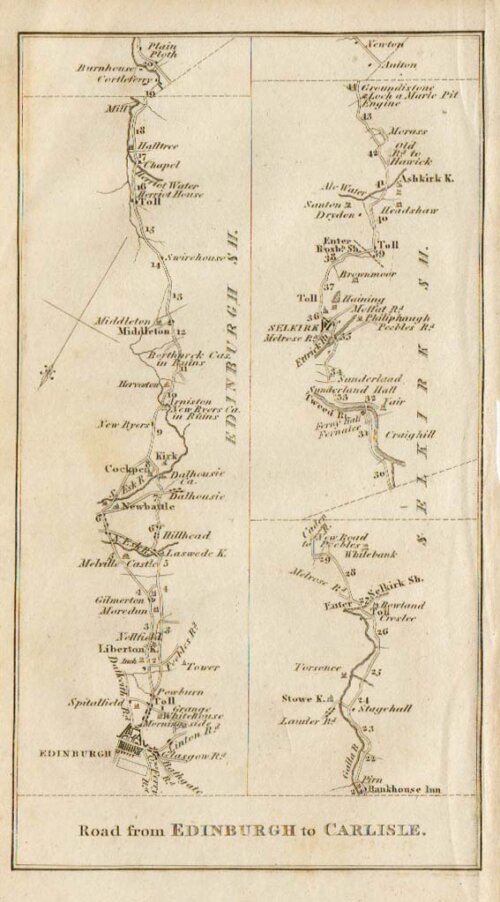 Plain
Ploth
Burnhouse
Cortleferry
20
19
Mill
18
Halltree
17
Chapel
Herriot Water
16
Herriot House
Toll
15
Swirehouse
14
13
Middleton
Middleton
12
Borthurck Cas.
in Ruins
11
10
Arniston
New Byers Ca.
in Ruins
New Byers
9
Kirk
Cockpen
Dalhousie
Ca.
S. Esk R.
7
Dalhousie
6
Newbattle
6
Hillhead
N. Esk R.
Laswede K.
Melville Castle
5
4
4
Gilmerton
Moredun
3
3
Nellfield
Liberton K.
Peebles Rd.
Inch
2
Tower
Dalkeith Rd.
Powburn
Toll
Spitalfield
Grange
Whitehouse
Morningside
Linton Rd.
EDINBURGH
Glasgow Rd.
Bathgate
R.
EDINBURGH SH.
Newton
Anlton
44
Groundistone
Loch a Marle Pit
Engine
43
Morass
42
Old
Rd. to
Hawick
Ashkirk K.
41
Ale Water
Santon
Dryden
Headshaw
40
Enter
Roxbh. Sh.
Toll
39
38
Brownmoor
37
Toll
Haining
36
Moffat Rd.
SELKIRK
Philiphaugh
Peebles Rd.
Melrose Rd.
35
Ettrick R.
34
Sunderland
Sunderland Hall
33
32
Yair
Tweed R.
Ferny Hall
Fernalee
31
Craighill
30
SELKIRK SH.
Cadon R.
New Road
to Peebles
29
Whitebank
28
Melrose Rd.
Selkirk Sh.
27
Enter
Bowland
Toll
Croslee
26
Torsence
25
Stowe K.
24
Stagehall
Lauder Rd.
23
Galla R.
22
Pirn
21
Bankhouse Inn
Road from EDINBURGH to CARLISLE.